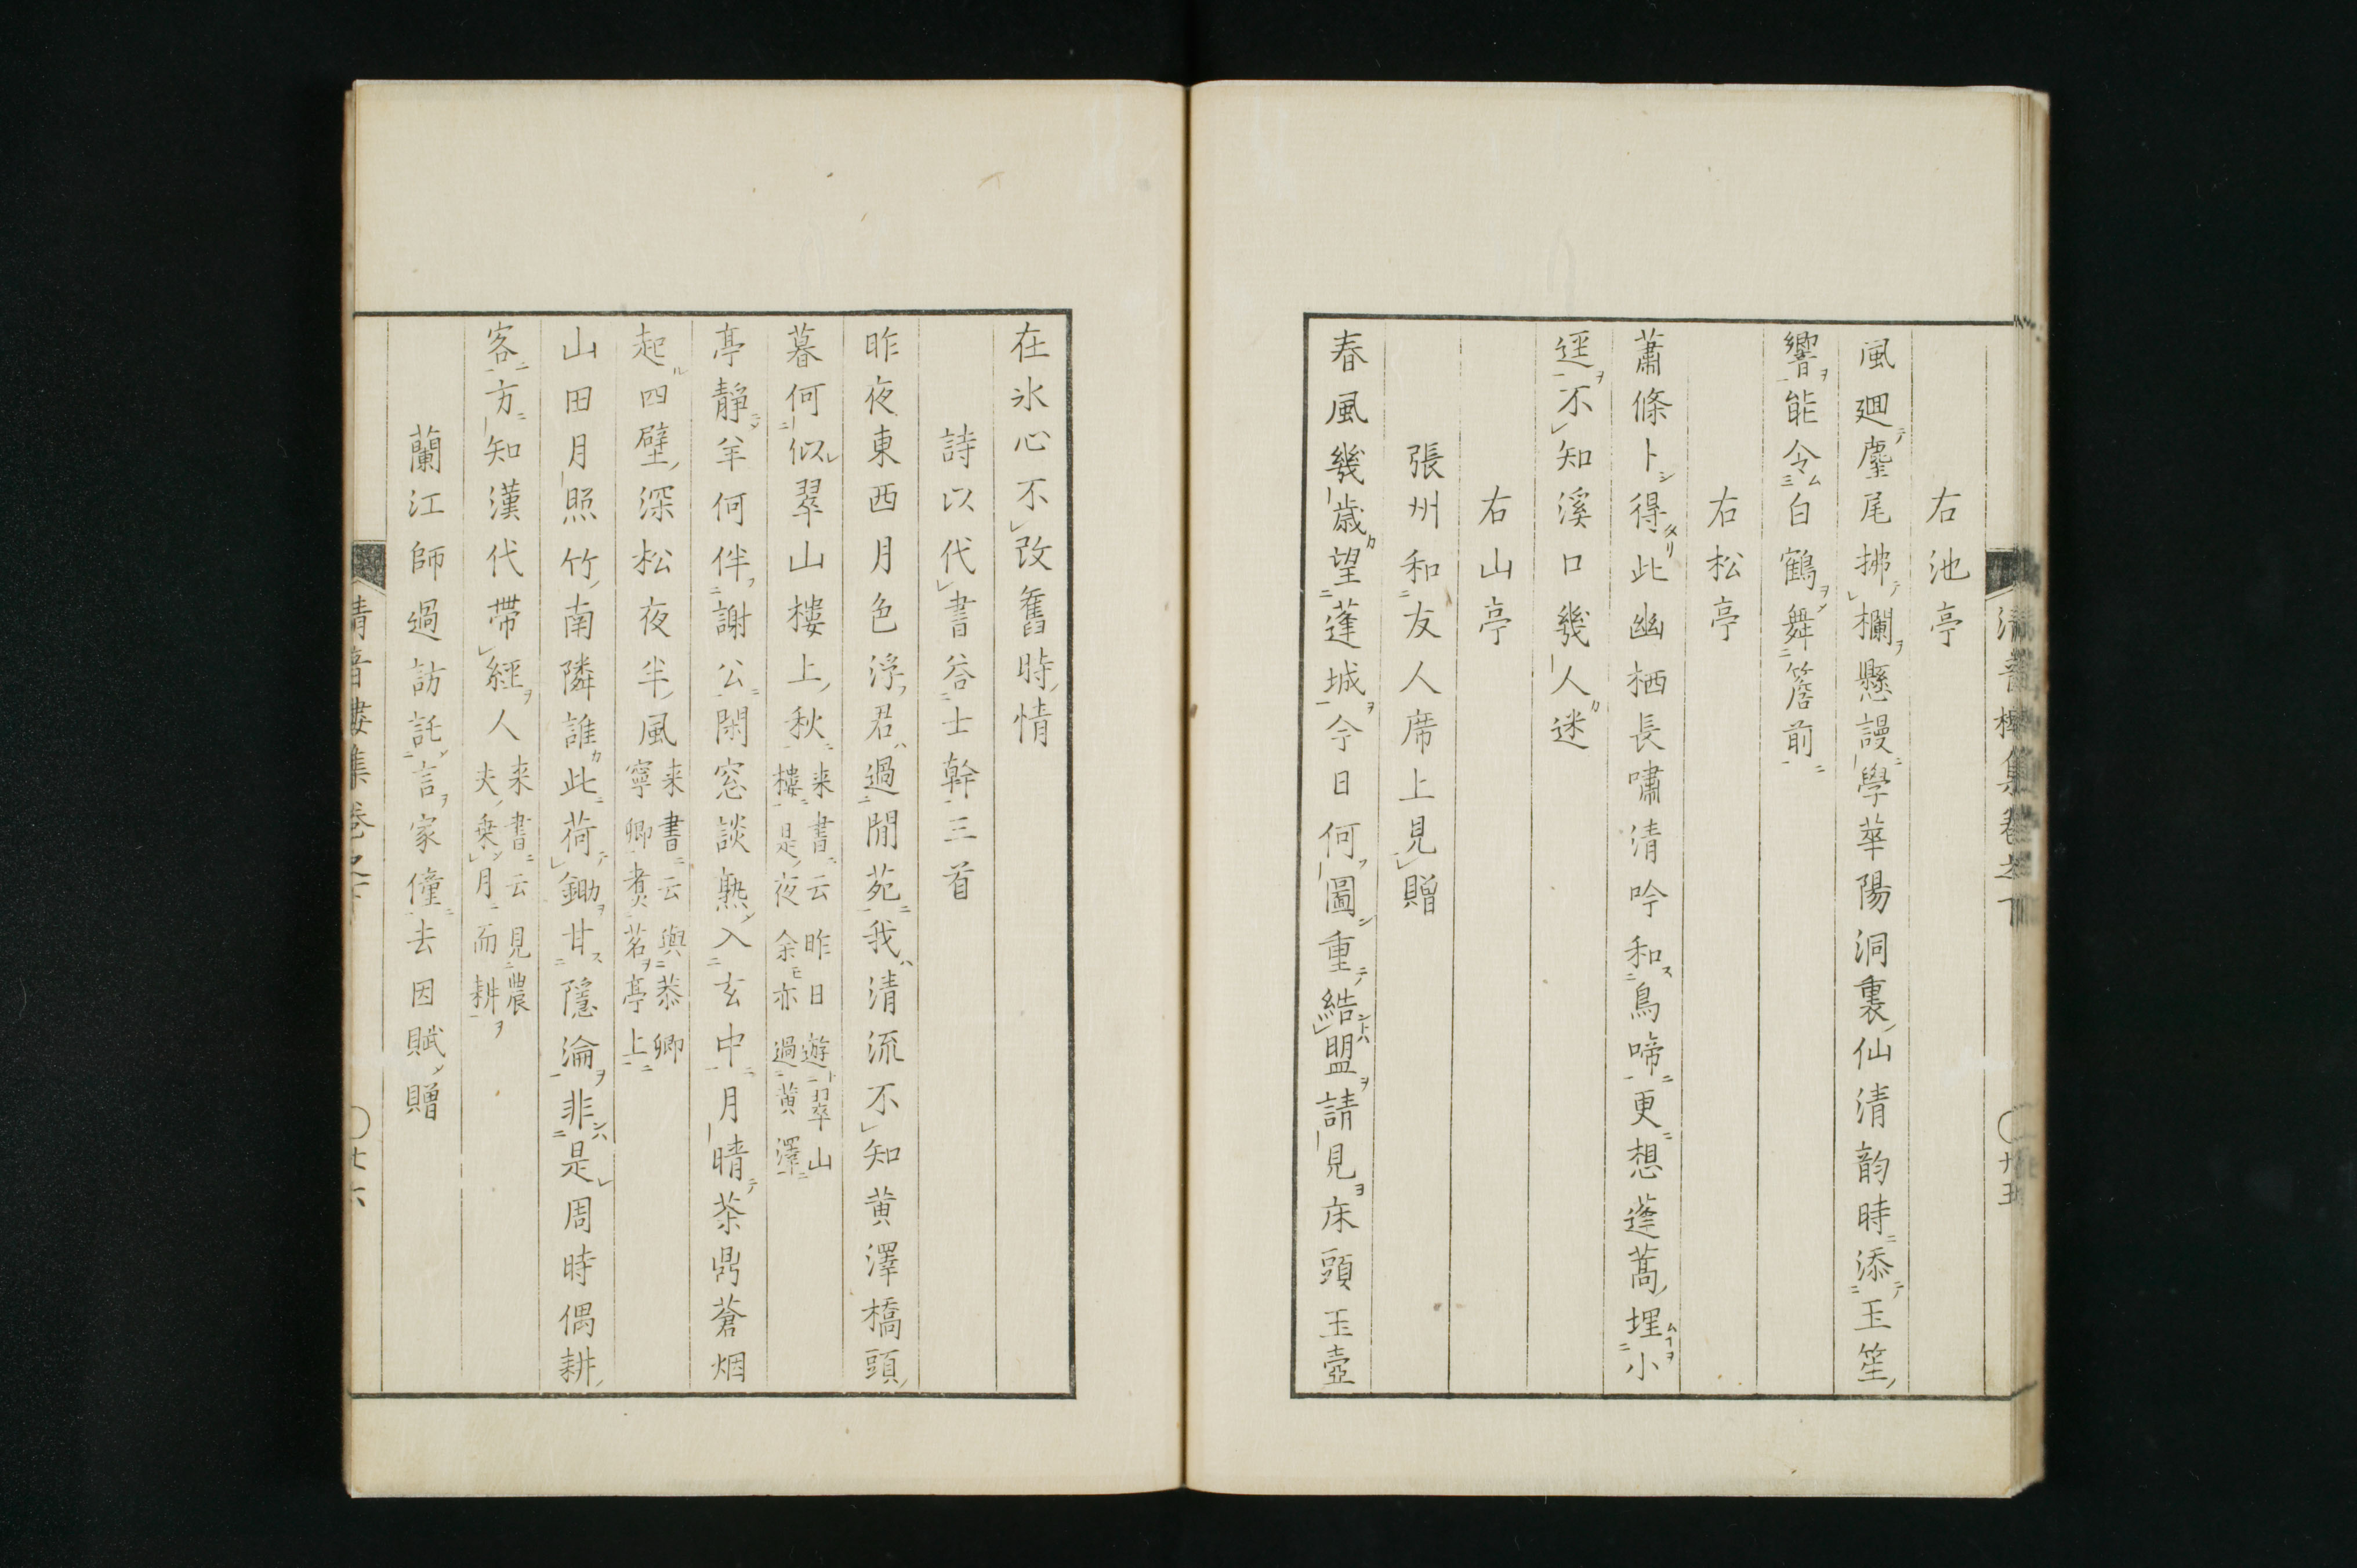 右池亭
風廻麈尾拂欄懸謾學華陽洞裏仙清韵時添玉笙
響能令白鶴舞簷前
右松亭
蕭條卜得此幽栖長嘯清吟和鳥啼更想蓬蒿埋小
逕不知溪口幾人迷
右山亭
張州和友人席上見贈
春風幾歳望蓬城今日何圖重結盟請見床頭玉壺
在氷心不改舊時情
詩以代書答士幹三首
昨夜東西月色浮君過閒苑我清流不知黄澤橋頭
暮何似翠山樓上秋
来書云昨日遊翠山
樓是夜余亦過黄澤
亭靜羊何伴謝公閑窓談熟入玄中月晴茶鼎蒼烟
起四壁深松夜半風
来書云與恭卿
寧卿煮茗亭上
山田月照竹南隣誰此荷鋤甘隱淪非是周時偶耕
客方知漢代帶經人
来書云見農
夫乗月而耕
蘭江師過訪託言家僮去因賦贈
清音樓集卷之下
廿六